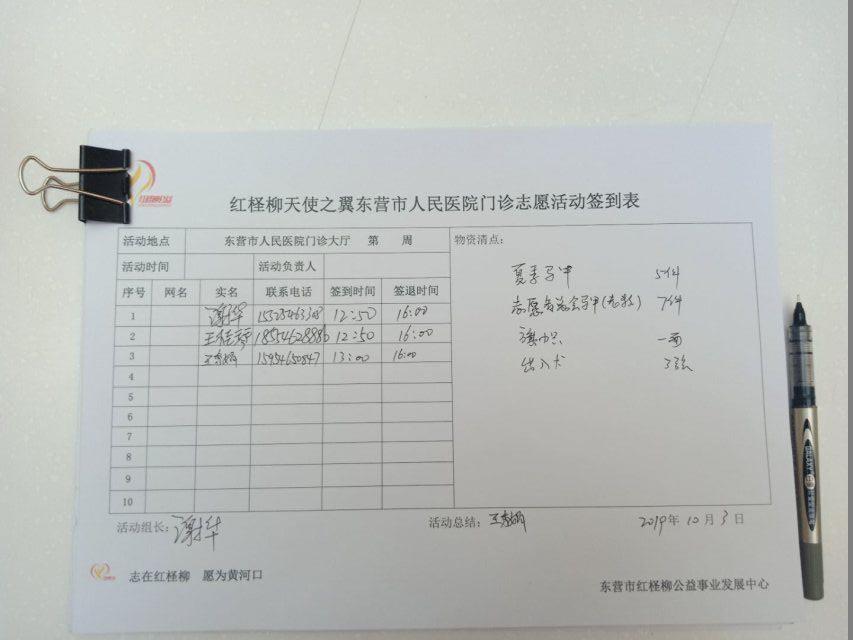 红柽柳天使之翼东营市人民医院门诊志愿活动签到表
活动地点 东营市人民医院门诊大厅 第 周 物资清点:
活动时间 活动负责人
序号 网名 实名 联系电话 签到时间 签退时间
夏季马甲 5件
1 谢华 12:50 16:00
志愿者总会马甲(老款) 7件
2 18554628886 12:50 16:00
旗帜 一面
3 15954650847 13:00 16:00
出入卡 3张
4
5
6
7
8
9
10
活动组长: 谢华 活动总结: 2019年10月3日
志在红柽柳 愿为黄河口
东营市红柽柳公益事业发展中心